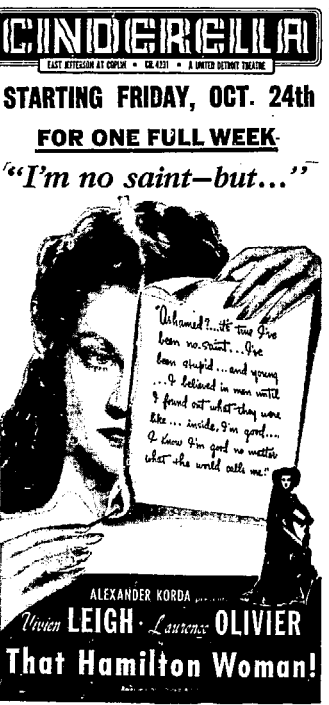 CINDERELLA
EAST JEFFERSON AT COPLIN • A UNITED DETROIT THEATRE
STARTING FRIDAY, OCT. 24th
FOR ONE FULL WEEK
"I'm no saint—but..."
"Ashamed?...it's true I've
been no saint...I've
been stupid...and young
...I believed in men until
I found out what they were
like... inside, I'm good....
I know I'm good no matter
what the world calls me."
ALEXANDER KORDA
Vivien LEIGH • Laurence OLIVIER
That Hamilton Woman!